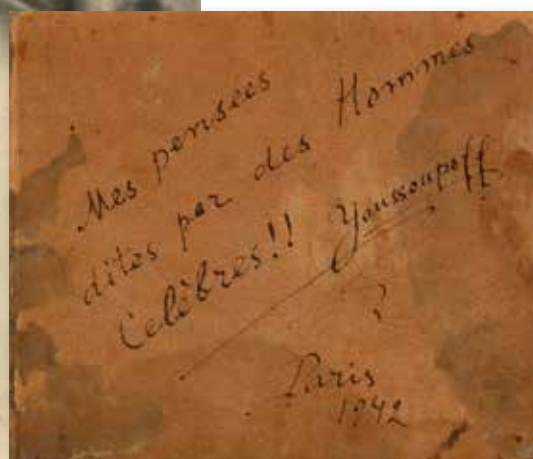 Mes pensees
dites par des Hommes
Celèbres!! Youssoupoff
?
Paris
1942